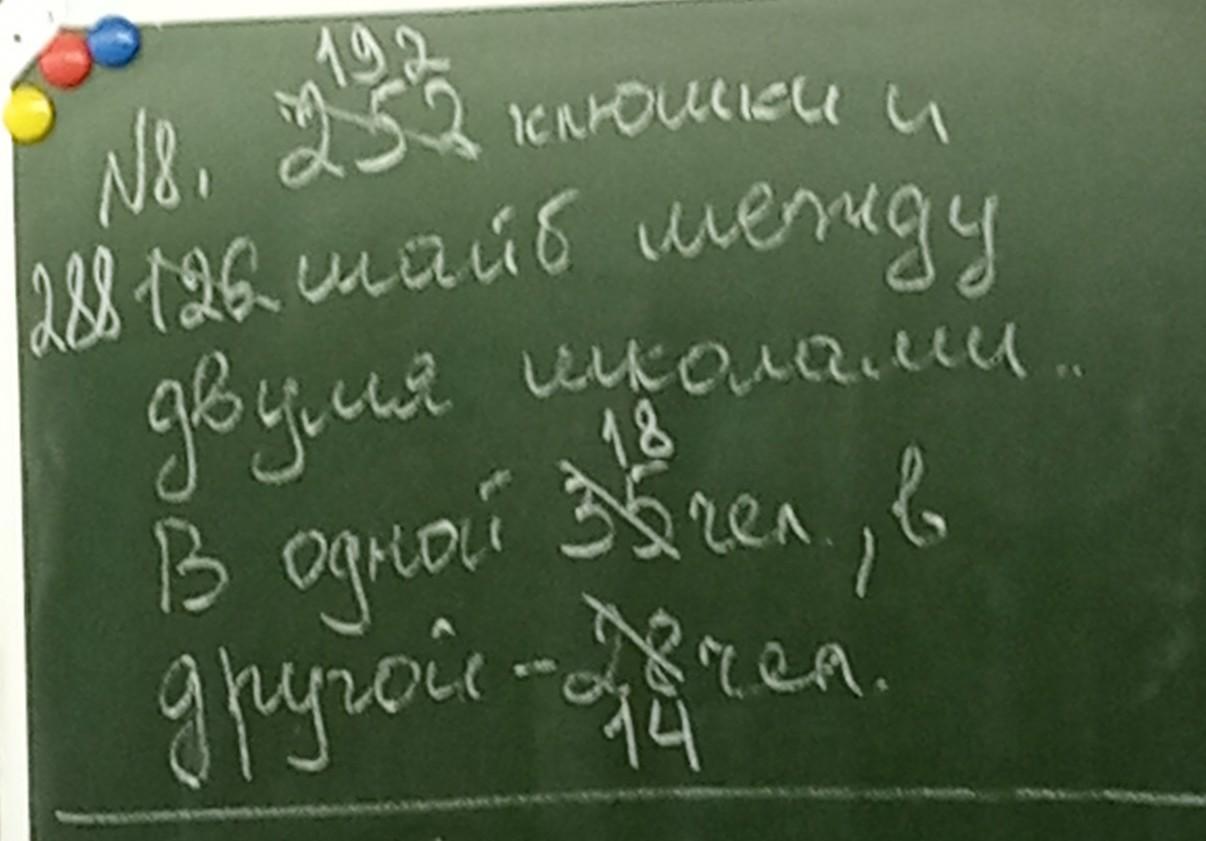 192
№8. 252 клюшки и
288 126 шайб между
двумя школами..
18
В одной 35 чел., в
другой - 28 чел.
14